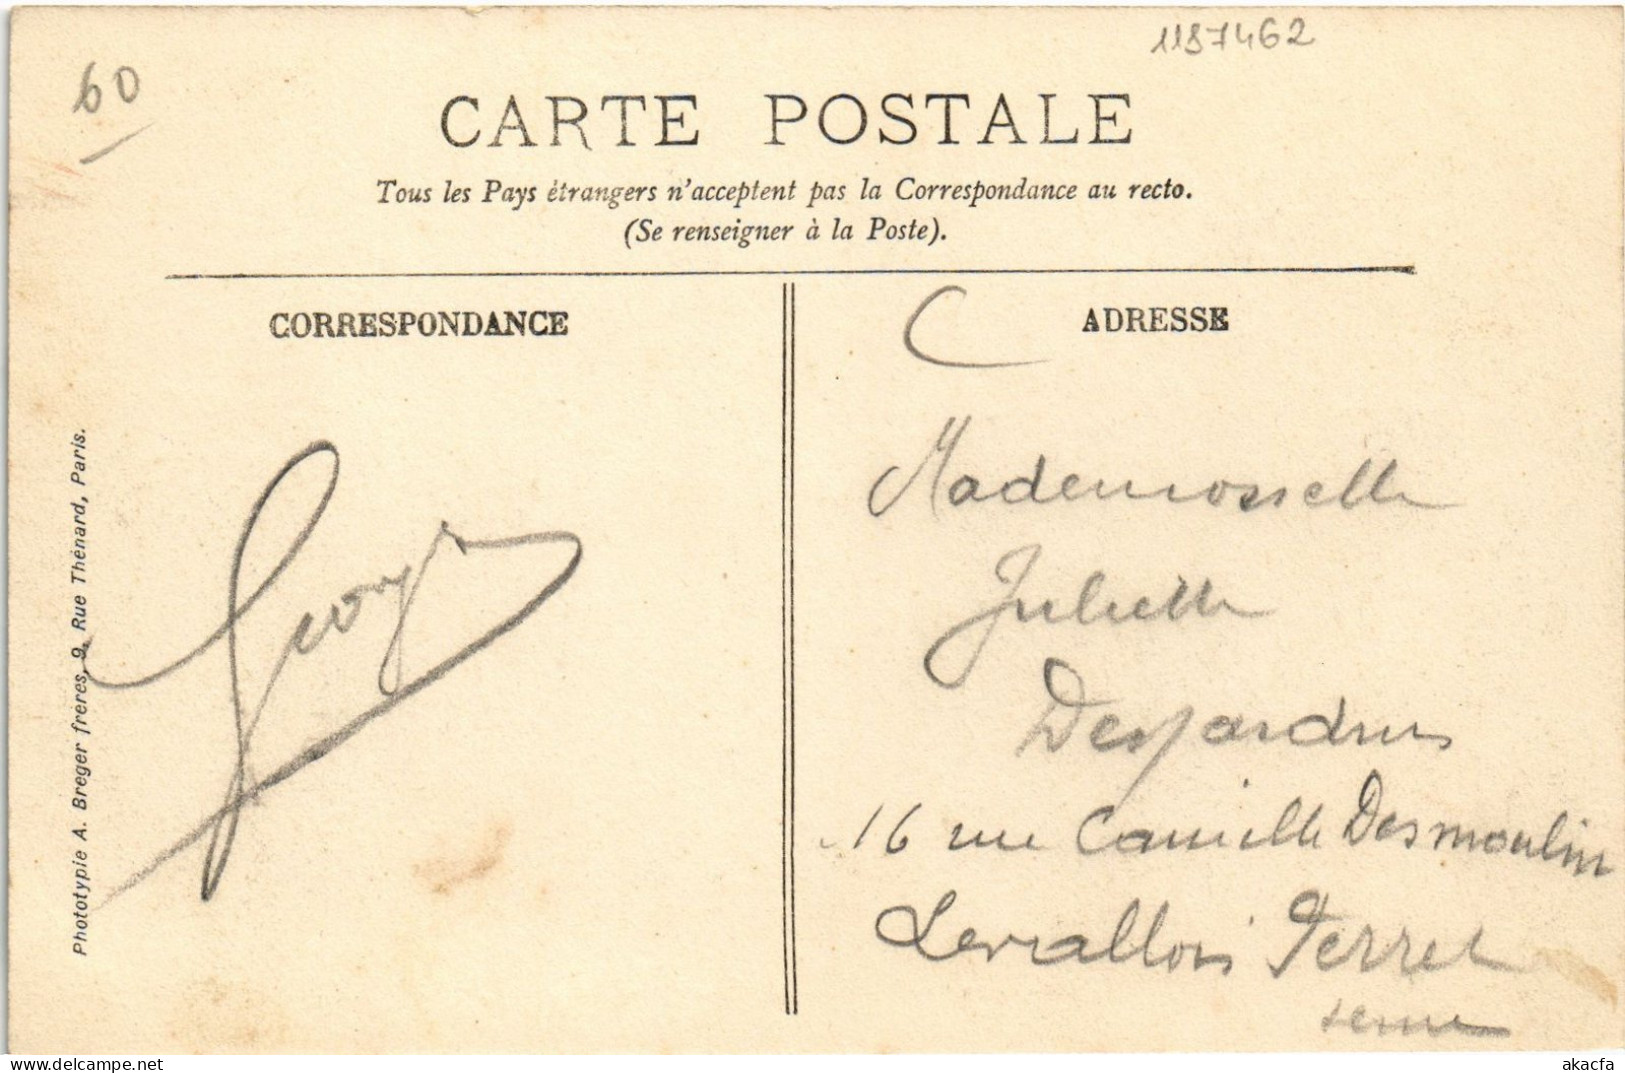 1187462
60
CARTE POSTALE
Tous les Pays étrangers n'acceptent pas la Correspondance au recto.
(Se renseigner à la Poste).
CORRESPONDANCE
ADRESSE
Phototypie A. Breger frères, 9, Rue Thénard, Paris.
Mademoiselle
Juliette
Desjardins
16 rue Camille Desmoulins
Levallois Perret
Seine
akacfa